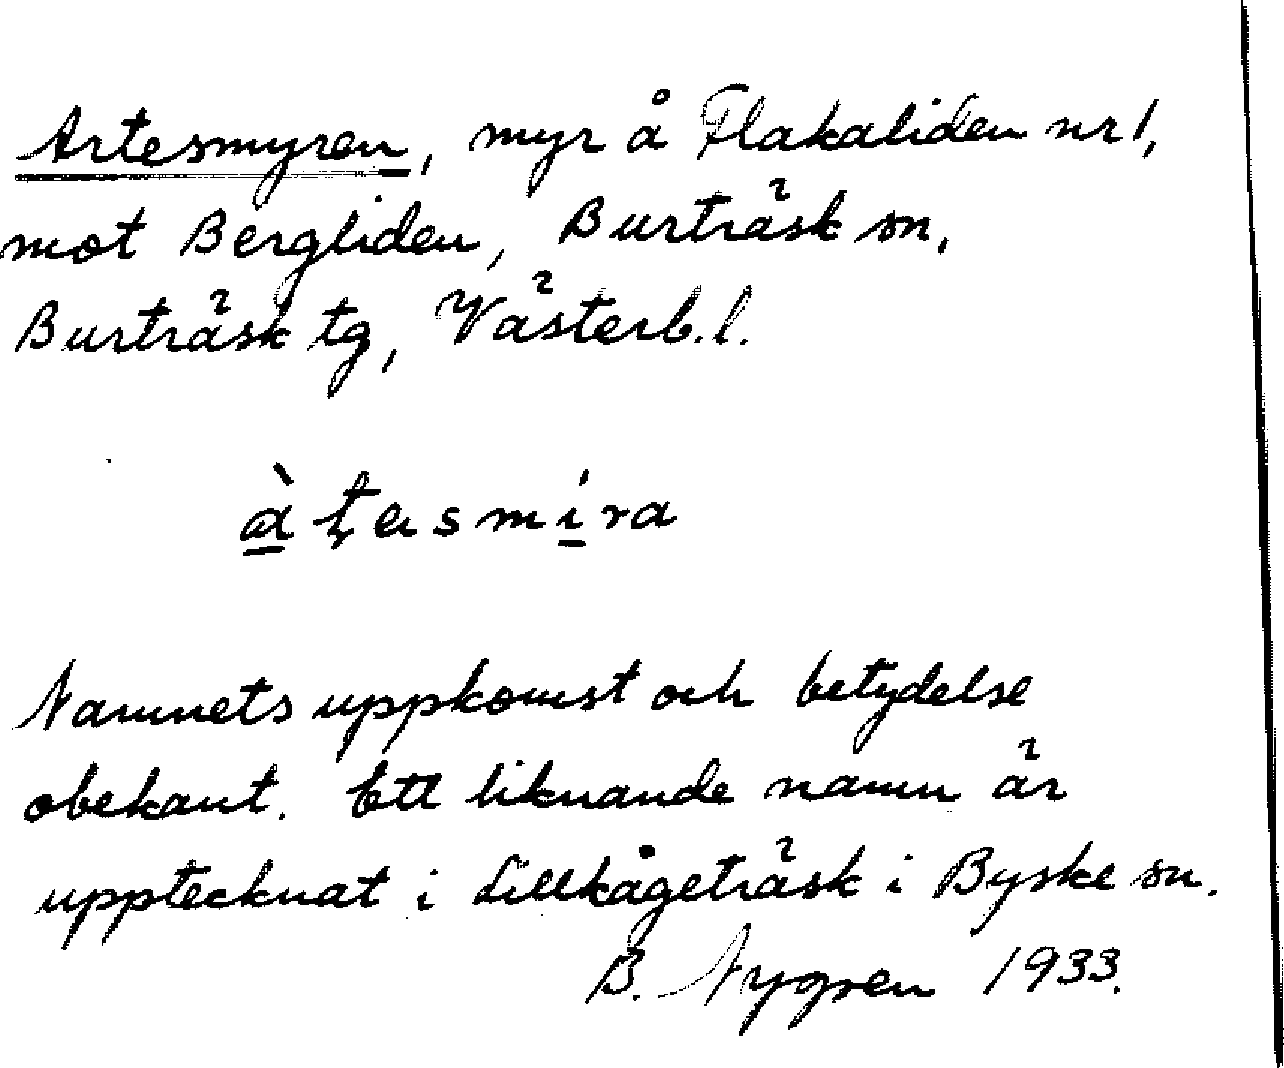 Artesmyren, myr å Flakaliden nr 1,
mot Bergliden, Burträsk sn,
Burträsk tg, Västerb. l.
àƫasmíra
Namnets uppkomst och betydelse
obekant. Ett liknande namn är
upptecknat i Lillkågeträsk i Byske sn.
B. Nygren 1933.